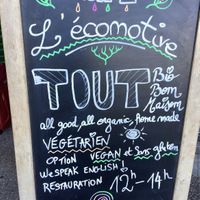 L'écomotive
TOUT Bio
Bon
Maison
all good, all organic, home made
VÉGÉTARIEN
OPTION VEGAN et Sans gluten
WE SPEAK ENGLISH!
RESTAURATION 12h - 14h